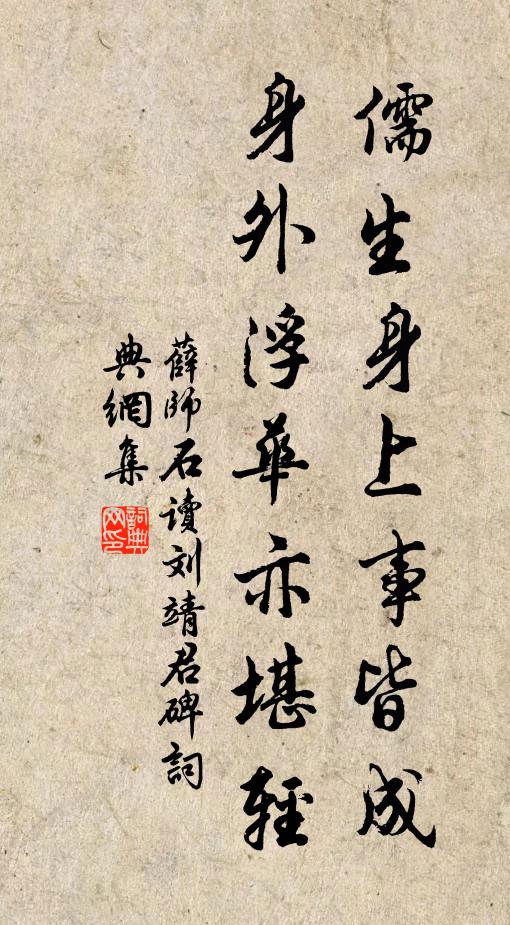 儒生身上事皆成
身外浮华亦堪輕
薛師石读刘靖君碑詞
典網集
詞典
网印